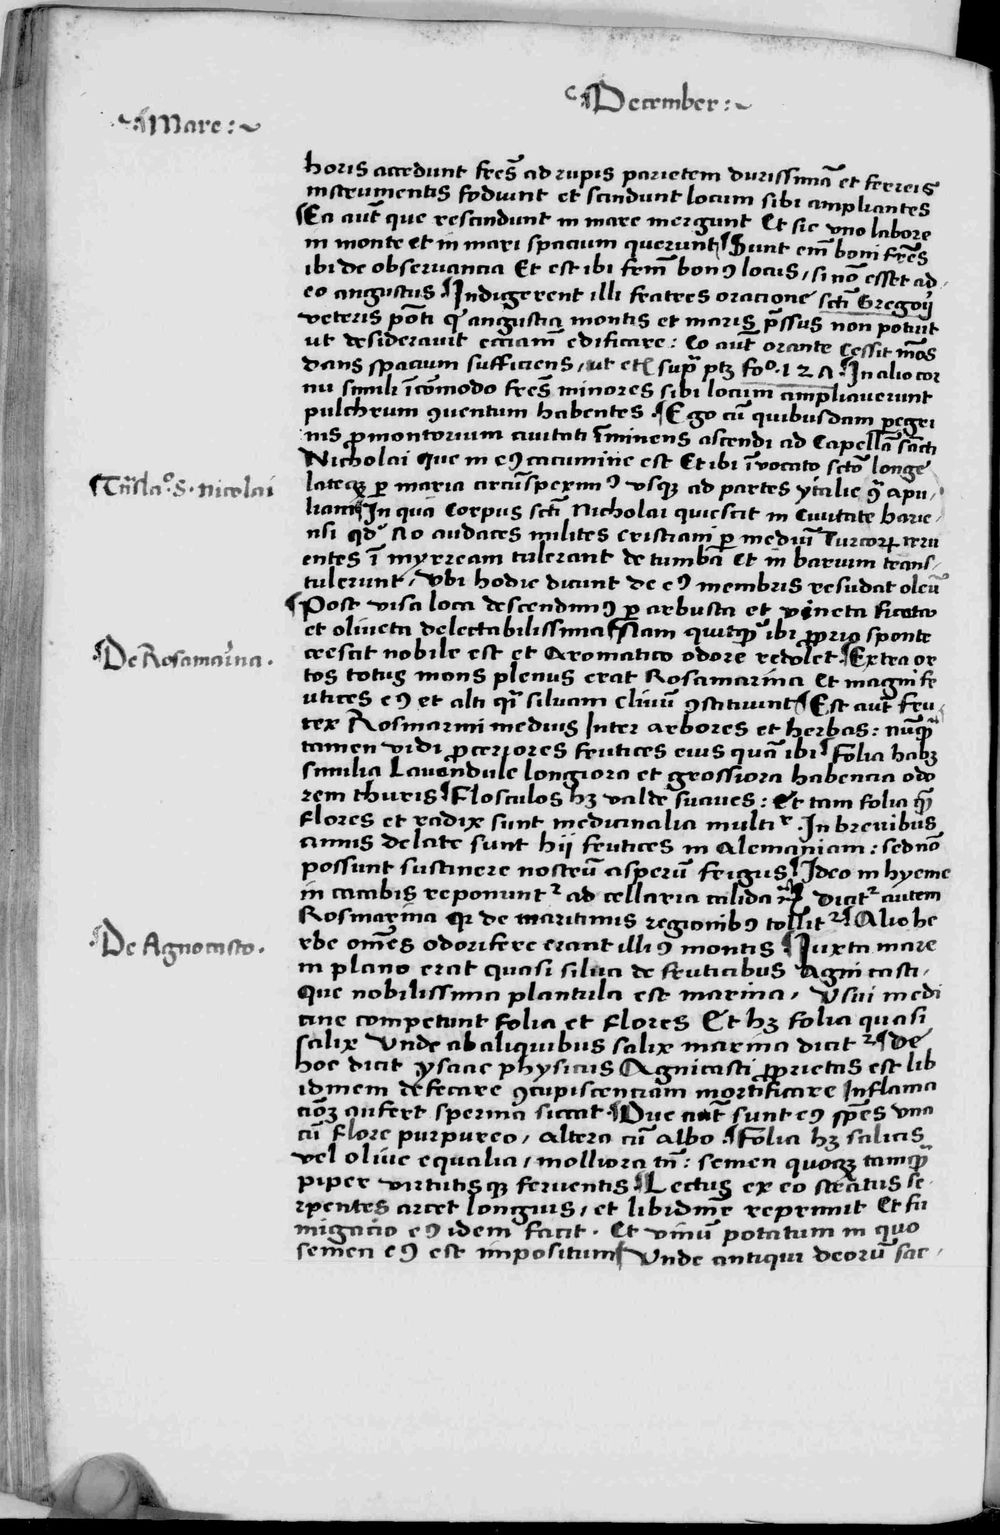 ¶December:~
~¶Mare:~
horis accedunt fr̄es ad rupis parietem durissimā et ferreis
instrumentis fodiunt et scindunt locum sibi ampliantes
¶Ea aut̄ que rescindunt in mare mergunt Et sic uno labore
in monte et in mari spacium querunt ¶Sunt em̄ boni fr̄es
ibi de obseruancia Et est ibi bonꝰ locus / si nō esset ad-
eo angustus ¶Indigerent illi fratres oracione sct̄i Gregorij
veteris angustia montis et maris p̄ssus non potuit
ut desiderauit ecciam̄ edificare: Eo aut̄ orante Cessit mōs
dans spacium sufficiens / ut sup̄ ptꝫ fo.º 1 2 A ¶In alio cor
nu simili īcōmodo fr̄es minores sibi locum ampliauerunt
pulchrum ꝯuentum habentes ¶Ego cū quibusdam ꝑegri
nis ꝓmontorium ciuitati īminens ascendi ad Capellā sāti
Nicholai que in eꝰ cacumine est Et ibi īuocato sctō longe
lateqꝫ ꝑ maria circūspeximꝰ usqꝫ ad partes ytalie apu-
liam ¶In qua Corpus sct̄i Nicholai quiescit in Ciuitate barie-
¶Trn̄sla.º S. nicolai
nsi audaces milites cristiani ꝑ mediū Turcorꝝ
entes ī myrream tulerant de tumba Et in barum trans-
tulerunt / Vbi hodie dicunt de eꝰ membris resudat oleū
¶Post visa loca descendimꝰ ꝑ arbusta et vineta ficeta
et oliueta delectabilissima ¶Nam quitqͥd ibi ꝓprio sponte
crescit nobile est et Aromatico odore redolet ¶Extra or
¶De Rosamarina.
tos totus mons plenus erat Rosamarina Et magni fr
utices eꝰ et alti siluam cliuū ꝯstituunt ¶Est aut̄ fru-
tex Rosmarini medius Inter arbores et herbas: nūqͣ
tamen vidi ꝓceriores frutices eius quā ibi ¶Folia habꝫ
similia Lauendule longiora et grossiora habencia odo
rem thuris ¶Flosculos hꝫ valde suaues: Et tam folia qͣ
flores et radix sunt medicinalia In breuibus
annis delate sunt hij frutices in Alemaniam: sed nō
possunt sustinere nostrū asperū frigus ¶Ideo in hyeme
in cacabis reponuntʳ ad cellaria calida dicitʳ autem
Rosmarina qꝛ de maritimis regionibꝰ tollitʳ ¶Alie he
rbe om̄es odorifere erant illiꝰ montis ¶Iuxta mare
¶De Agnocasto.
in plano erat quasi silua de fruticibus Agni casti.
Que nobilissima plantula est marina / Vsui medi
cine competunt folia et flores Et hꝫ folia quasi
salix Vnde ab aliquibus salix marina dicitʳ ¶De
hoc dicit ysaac physicus Agnicasti ꝓprietas est lib
idinem defecare ꝯcupiscentiam mortificare Inflama
cioꝫ aufert sperma siccat ¶Due aut̄ sunt eꝰ sp̄es vna
cū flore purpureo / altera cū albo ¶Folia hꝫ salicis
vel oliue equalia / molliora tn̄: semen quoqꝫ tamqͣ
piper virtutisqꝫ feruentis ¶Lectus ex eo stratus se-
rpentes arcet longius / et libidinē reprimit Et fu
migacio eꝰ idem facit. Et vinū potatum in quo
semen eꝰ est impositum ¶Vnde antiqui deorū sac-